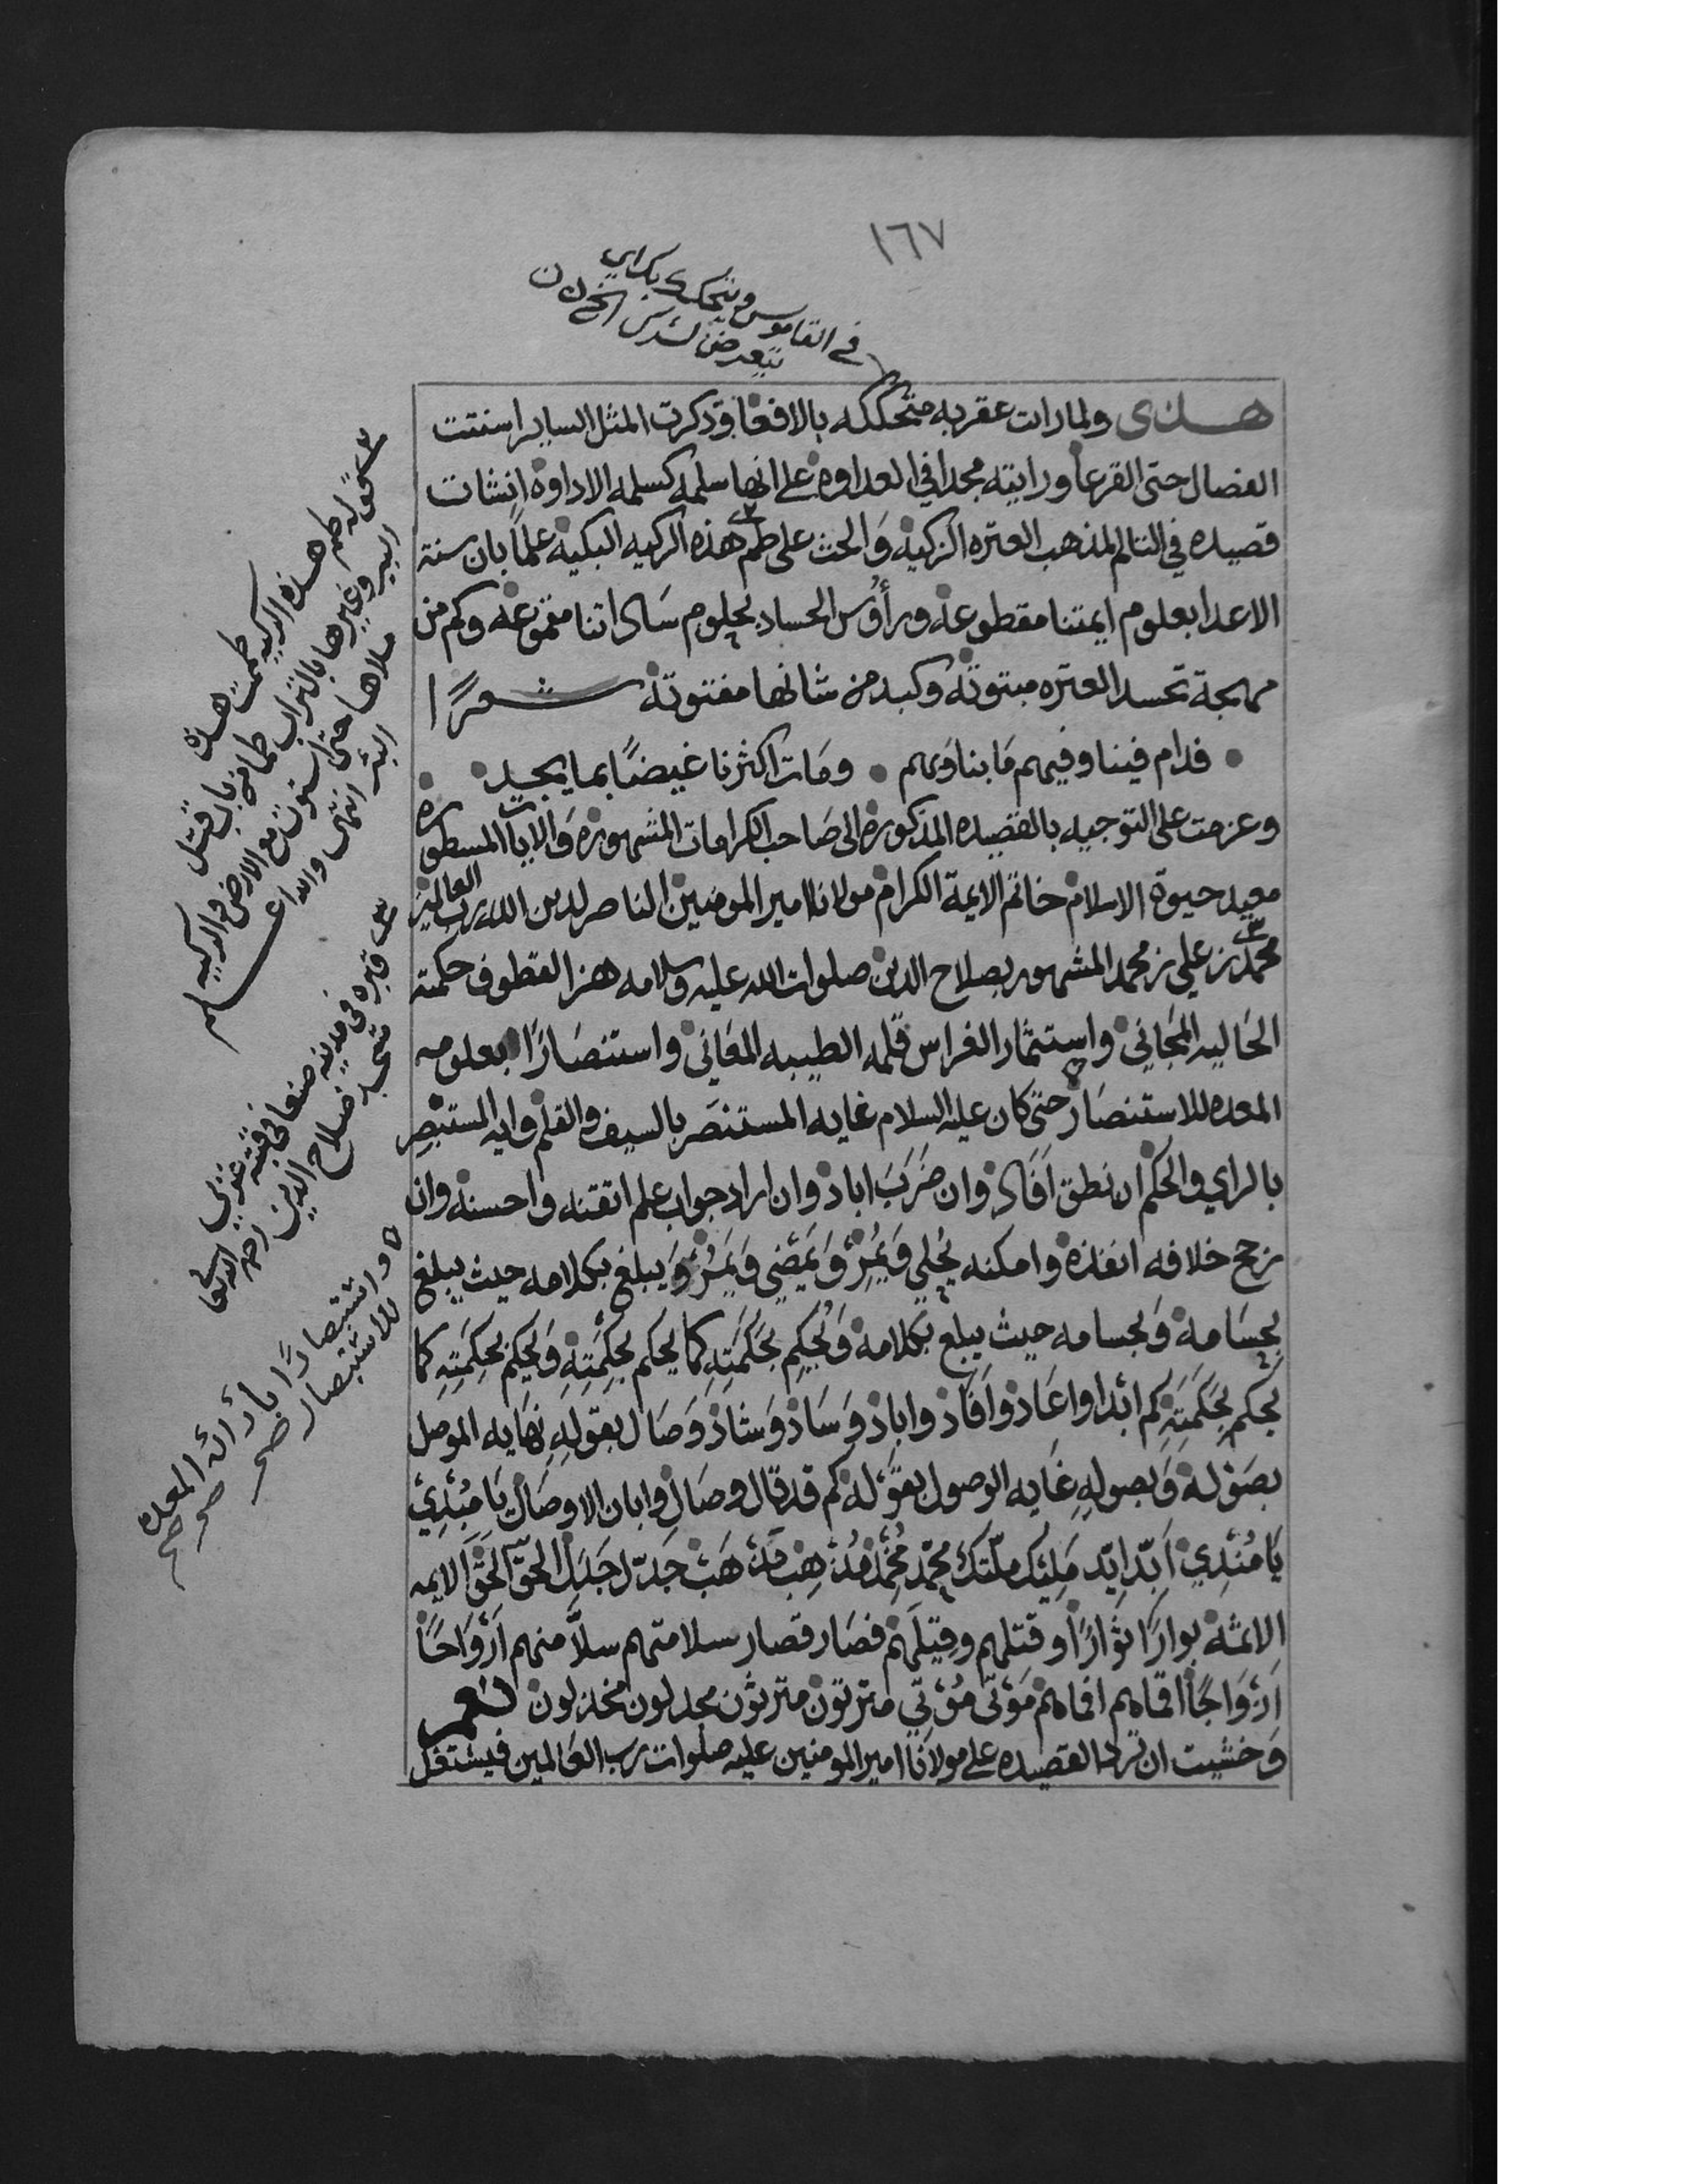 ١٦٧
في القاموس وتحكك بك اي
تعرض لشرك
هذى ولما رات عقربه متحككه بالافعا وذكرت المثل الساير استنت
الفصال حتى القرعا ورايته مجدا في العداوه على انها سلمه كسلمه الاداوه انشات
قصيده في التالم لمذهب العتره الزكيه وَالحث على طم هذه الركيه البكيه علمًا بان سنة
الاعدا بعلوم ايمتنا مقطوعه ورأوُس الحساد بحلوم سَاداتنا مقموعه وكم من
مهجة تحسد العتره مبتوته وكبد من شانها مفتوته شعرًا
فدام فينا وفيهم مَا بنا وَبهم • ومَات اكثرنا غيضًا بما يجد
وعزمت على التوجيه بالقصيده المذكوره الى صَاحب الكرامات المشهوره وَالايات المسطوره
معيد حيوة الاسلام خاتم الايمة الكرام مولانا امير المومنين الناصر لدين الله رب العالمين
محمد بن علي بن محمد المشهور بصلاح الدين صلوات الله عليه وسلامه هزا لقطوف حكمته
الحَاليه المجَاني واستثمار الغراس قلمه الطيبه المعَاني واستنصَارًا بعلومه
المعده للاستنصَار حتى كان عليه السلام غايه المستنصَر بالسيف والقلم وايه المستبصِر
بالراي والحكم ان نطق اَفَاد وان ضَرَبَ اباد وان اراد جواب علم اتقنه واحسنه وان
رجح خلافه انفذه وامكنه يُحلي وَيُمِرّ وَيَمضي وَيَمُرّ وَيبلغ بكلامه حيث يبلغ
بحسَامه وَبحسامه حيث يبلغ بكلامه وَيُحكِم بحَكَمَتِهِ كما يحكم بحِكمَتِهِ وَيحكم بحِكمَتِهِ كما
يَحكم بحَكَمَتِهِ كم ابدا واعَاد وَاَفَاد واباد وَسَاد وَشاد وَصَال بقولهِ نهَايه الموصل
بصَوْله وَبصولهِ غَايه الوصول بقَوْله كم قد قال وصَال وابان الاوصَال يَا مُبْدِئ
يَا مُنْدِي اَبّد ايّد مَلِيْك ملّتك محَمّد
الايمه بوارًا وقتلهم فصَار قصار سلامتهم سلاًّ منهم اَرْوَاحًا
اَزْوَاجًا اقماهم افماهم مَوْتى مُؤْتي مجدلون مخذلون
وَخشيت ان ترد القصيده على مولانا امير المومنين عليه صلوات رب العَالمين فيشتغل
قوله طم هذه الركيه طممت هذه
البير وغيرها بالتراب طما من باب قتل
ملاها حتى استوت مع الارض والركيه
البئر انتهى والله اعلم
قبره في مدينه صنعا في قبته غربي
مسجد صلاح الدين رحمه الله تعالى
واستبصارًا بارائه المعده
للاستبصار صح